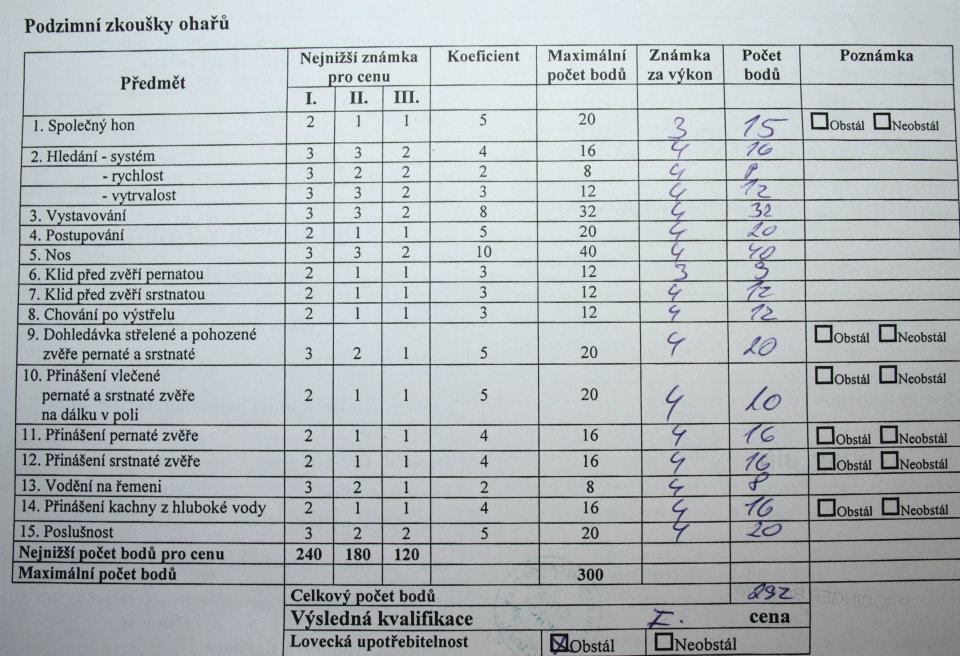 Podzimní zkoušky ohařů
Předmět Nejnižší známka pro cenu Koeficient Maximální počet bodů Známka za výkon Počet bodů Poznámka
I. II. III.
1. Společný hon 2 1 1 5 20 3 15 Obstál Neobstál
2. Hledání - systém 3 3 2 4 16 4 16
- rychlost 3 2 2 2 8 4 8
- vytrvalost 3 3 2 3 12 4 12
3. Vystavování 3 3 2 8 32 4 32
4. Postupování 2 1 1 5 20 4 20
5. Nos 3 3 2 10 40 4 40
6. Klid před zvěří pernatou 2 1 1 3 12 3 9
7. Klid před zvěří srstnatou 2 1 1 3 12 4 12
8. Chování po výstřelu 2 1 1 3 12 4 12
9. Dohledávka střelené a pohozené
zvěře pernaté a srstnaté 3 2 1 5 20 4 20 Obstál Neobstál
10. Přinášení vlečené
pernaté a srstnaté zvěře 2 1 1 5 20 4 20 Obstál Neobstál
na dálku v poli
11. Přinášení pernaté zvěře 2 1 1 4 16 4 16 Obstál Neobstál
12. Přinášení srstnaté zvěře 2 1 1 4 16 4 16 Obstál Neobstál
13. Vodění na řemeni 3 2 1 2 8 4 8
14. Přinášení kachny z hluboké vody 2 1 1 4 16 4 16 Obstál Neobstál
15. Poslušnost 3 2 2 5 20 4 20
Nejnižší počet bodů pro cenu 240 180 120
Maximální počet bodů 300
Celkový počet bodů 292
Výsledná kvalifikace I. cena
Lovecká upotřebitelnost Obstál Neobstál